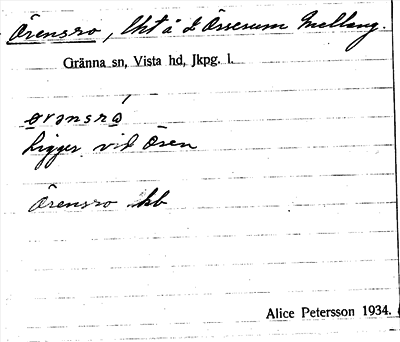 Örensro, lht å L. Örserum Mellang.
Gränna sn, Vista hd, Jkpg. l.
ørənsro
Ligger vid Ören
Örensro kb
Alice Petersson 1934.